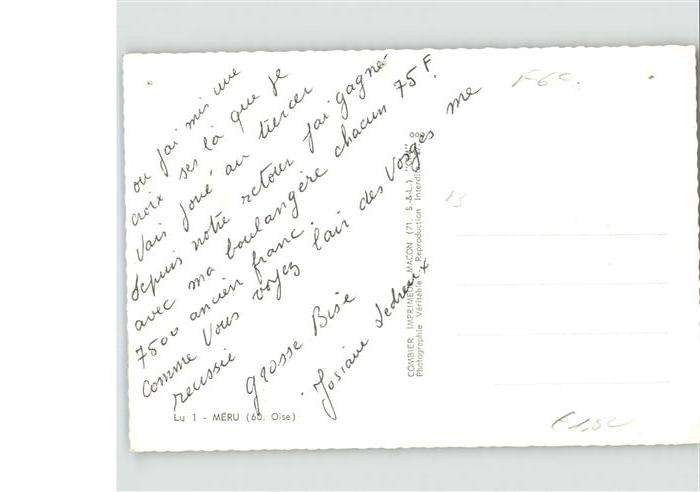 ou j'ai mis une
croix ses là que je
Vais joué au tiercer
depuis notre retour j'ai gagné
avec ma boulangère chacun 75F.
7500 ancien franc.
comme Vous voyez l'air des Vosges me
reussie
grosse Bise
Josiane Ledreux
Lu 1 - MÉRU (60. Oise)
COMBIER IMPRIMEUR MACON (71. S.-&-L.)
Photographie Véritable - Reproduction Interdite
13